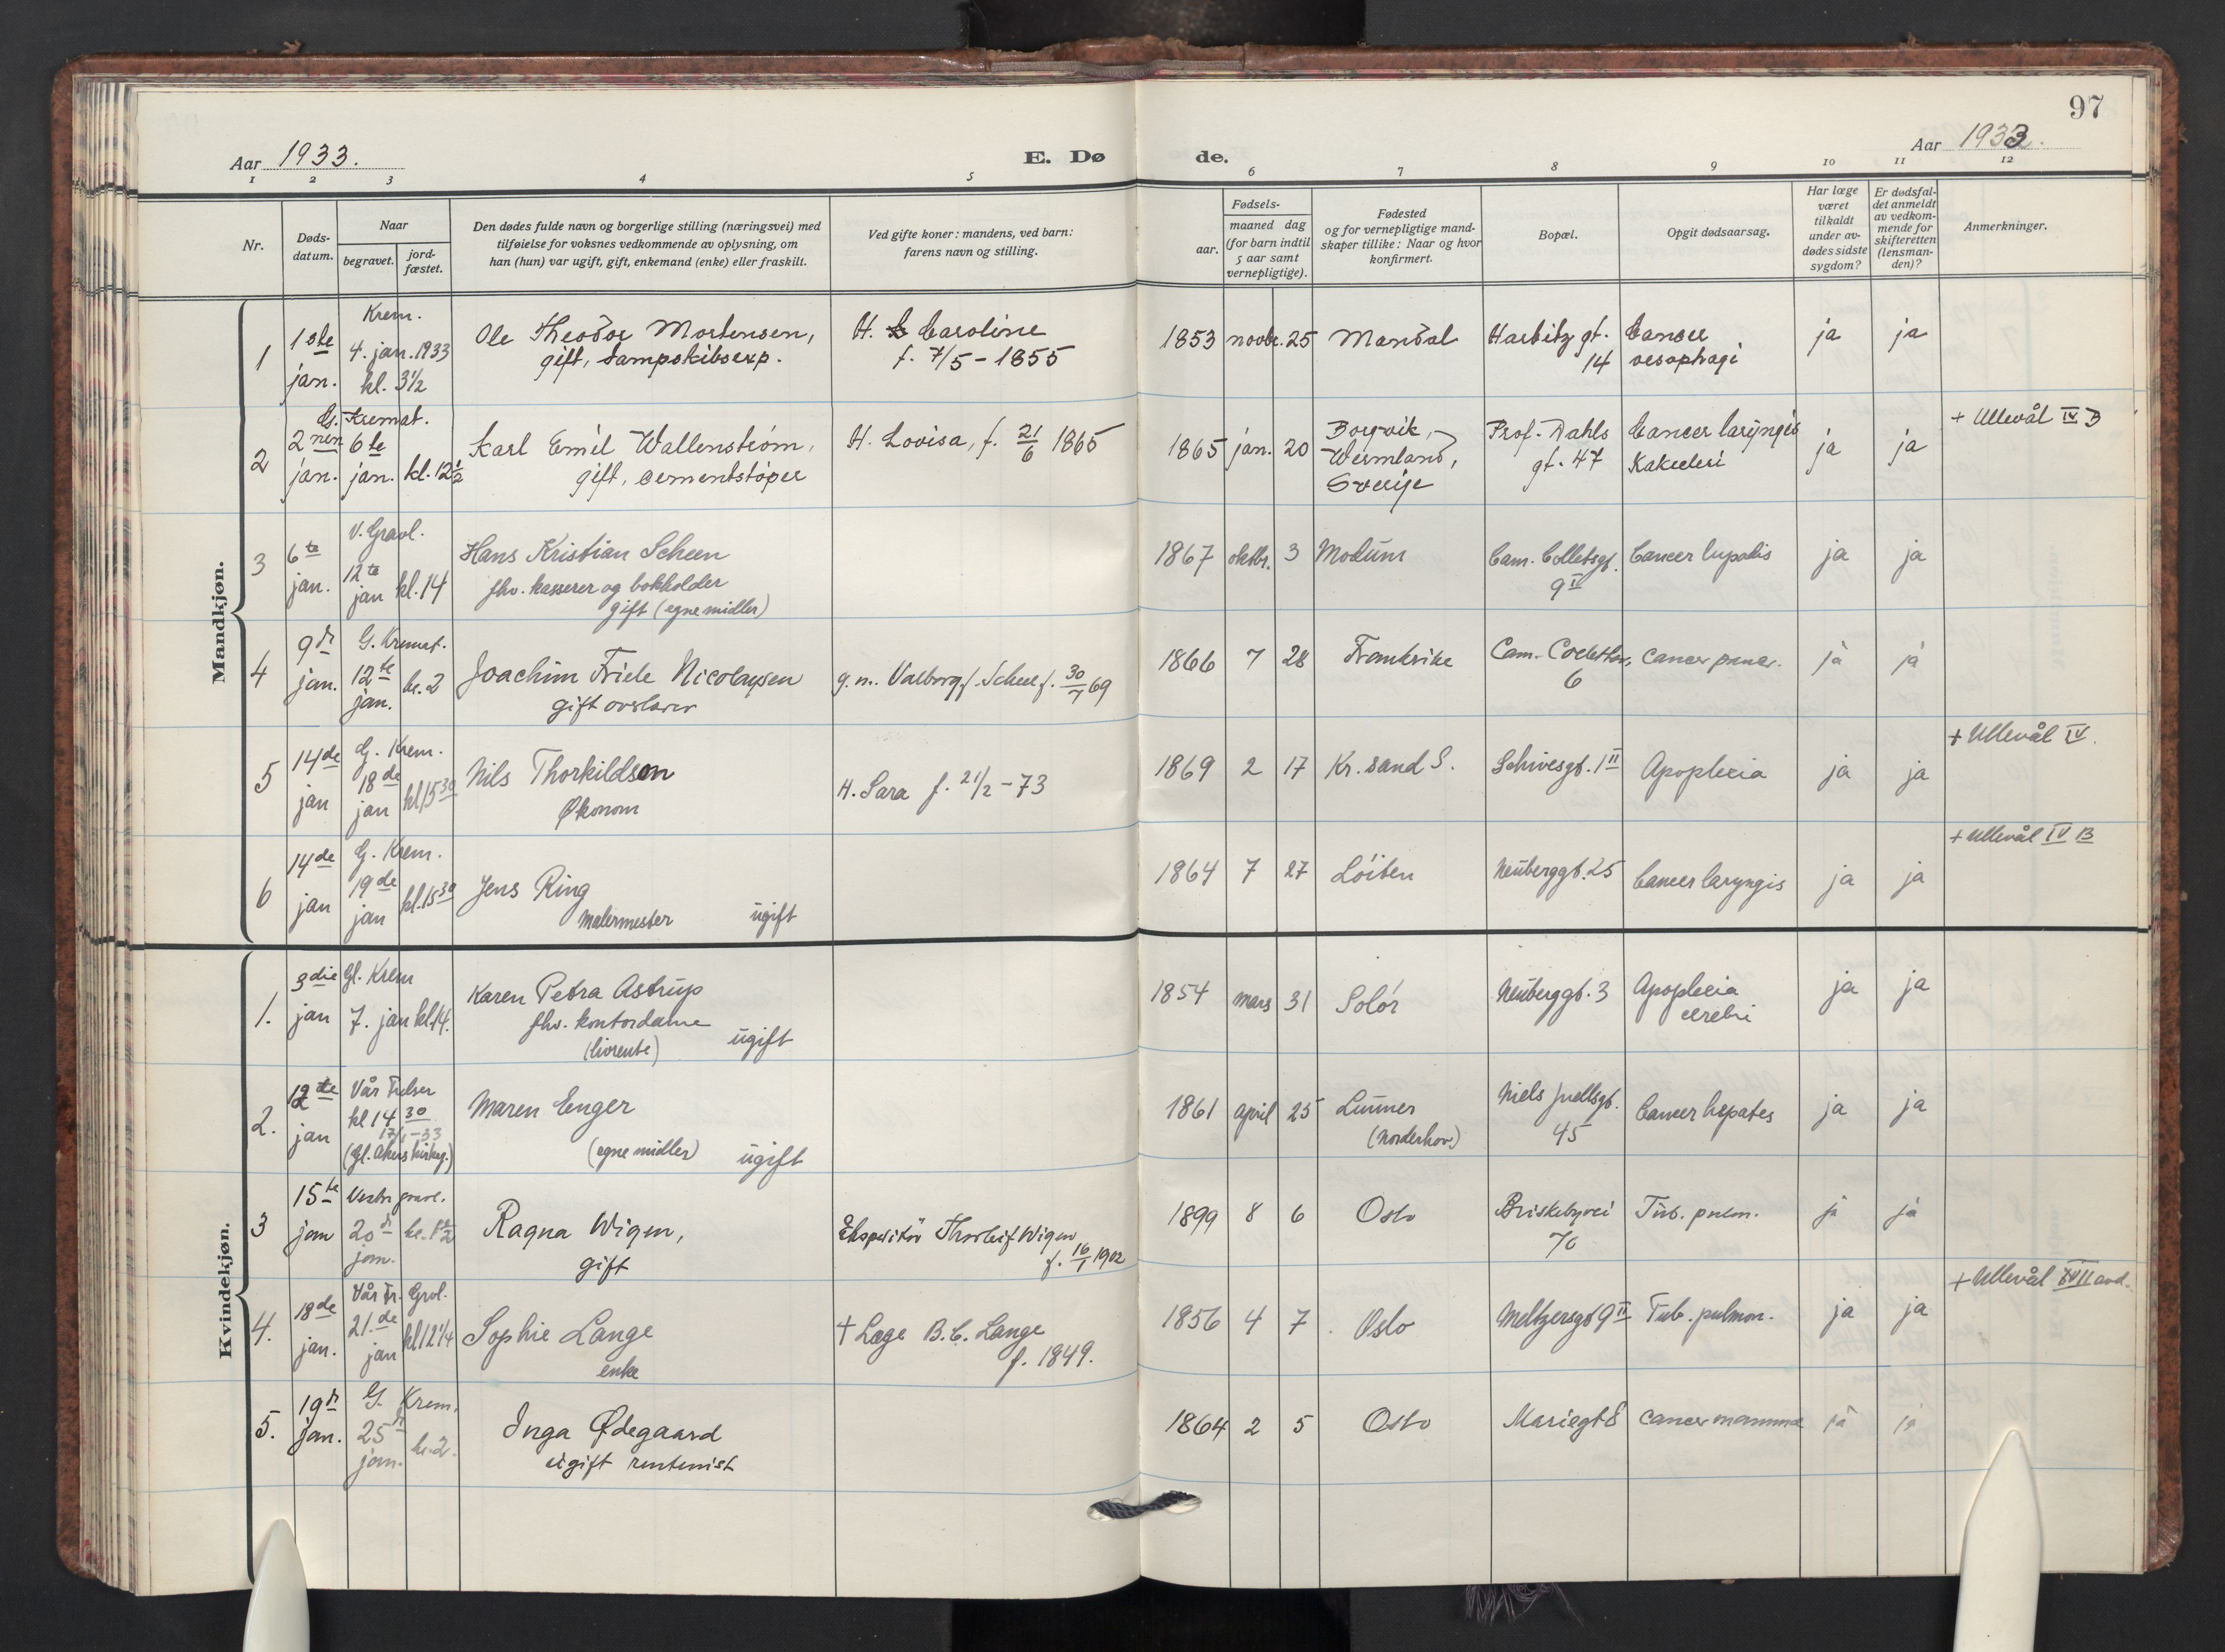 97
Aar 1933. E. Dø de. Aar 1933.
1 2 3 4 5 6 7 8 9 10 11 12
Nr.
Døds-
datum.
Naar
begravet.
jord-
fæstet.
Den dødes fulde navn og borgerlige stilling (næringsvei) med
tilføielse for voksnes vedkommende av oplysning, om
han (hun) var ugift, gift, enkemand (enke) eller fraskilt.
Ved gifte koner: mandens, ved barn:
farens navn og stilling.
Fødsels-
aar.
maaned dag
(for barn indtil
5 aar samt
vernepligtige).
Fødested
og for vernepligtige mand-
skaper tillike: Naar og hvor
konfirmert.
Bopæl.
Opgit dødsaarsag.
Har læge
været
tilkaldt
under av-
dødes sidste
sygdom?
Er dødsfal-
det anmeldt
av vedkom-
mende for
skifteretten
(lensman-
den)?
Anmerkninger.
Mandkjøn.
1
1ste
jan.
Krem.
4. jan. 1933
kl. 3½
Ole Theodor Mortensen,
gift, dampskibsexp.
H. Caroline
f. 7/5 - 1855
1853 novbr. 25 Mandal
Harbitz gt.
14
Cancer
oesophagi
ja ja
2
2nen
jan.
G. Kremat.
6te
jan. kl. 12½
Karl Emil Wallenstrøm,
gift, cementstøper
H. Lovisa, f. 21/6 1865
1865 jan. 20
Borgvik,
Wermland,
Sverige
Prof. Dahls
gt. 47
Cancer laryngis
ja ja
+ Ullevål IV B
3
6te
jan.
V. Gravl.
12te
jan kl. 14
Hans Kristian Scheen
fhv. kasserer og bokholder
gift (egne midler)
1867 oktbr. 3 Modum
Cam. Colletsgt.
9 II
Cancer
ja ja
4
9de
jan.
G. Kremat.
12te
jan. kl. 2
Joachim Friele Nicolaysen
gift
g. m. Valborg f. Scheel f. 30/7 69
1866 7 28 Frankrike
Cam. Collettsv.
6
Cancer pancr.
ja ja
5
14de
jan
G. Krem.
18de
jan kl 15 30
Nils Thorkildsen
Økonom
H. Sara f. 21/2 - 73
1869 2 17 Kr. sand S.
Schivesgt. 1 II
Apoplexia
ja ja
+ Ullevål IV.
6
14de
jan
G. Krem.
19de
jan kl. 15 30
Jens Ring
Malermester ugift
1864 7 27 Løiten
Neuberggt. 25
Cancer laryngis
ja ja
+ Ullevål IV B
Kvindekjøn.
1.
3die
jan
Gl. Krem
7. jan kl. 14.
Karen Petra Astrup
fhv. kontordame
(livrente) ugift
1854 mars 31 Solør
Neuberggt. 3
Apoplexia
cerebri
ja ja
2.
12te
jan
Vår Frelser
kl 14 30
17/1 - 33
(Gl. Akers kirkeg.)
Maren Enger
(egne midler) ugift
1861 april 25
Lunner
(Norderhov)
Niels Juellsgt.
45
Cancer hepates
ja ja
3
15te
jan
Vestre gravl.
20de
jan.
Ragna Wigen,
gift
Ekspeditør Thorleif Wigen
f. 16/1 1902
1899 8 6 Oslo
Briskebyvei
70
Tub. pulm.
ja ja
4.
18de
jan.
Vår Fr. Grvl.
21.de
jan kl 12 1/4
Sophie Lange
enke
+ Læge B. C. Lange
f. 1849.
1856 4 7 Oslo
Meltzersgt 9 II
Tub. pulmon.
ja ja
+ Ullevål XVII avd.
5.
19de
jan.
G. Krem.
25de
jan. kl. 2.
Inga Ødegaard
ugift rentenist
1864 2 5 Oslo
Mariegt 8
Cancer mammae
ja ja